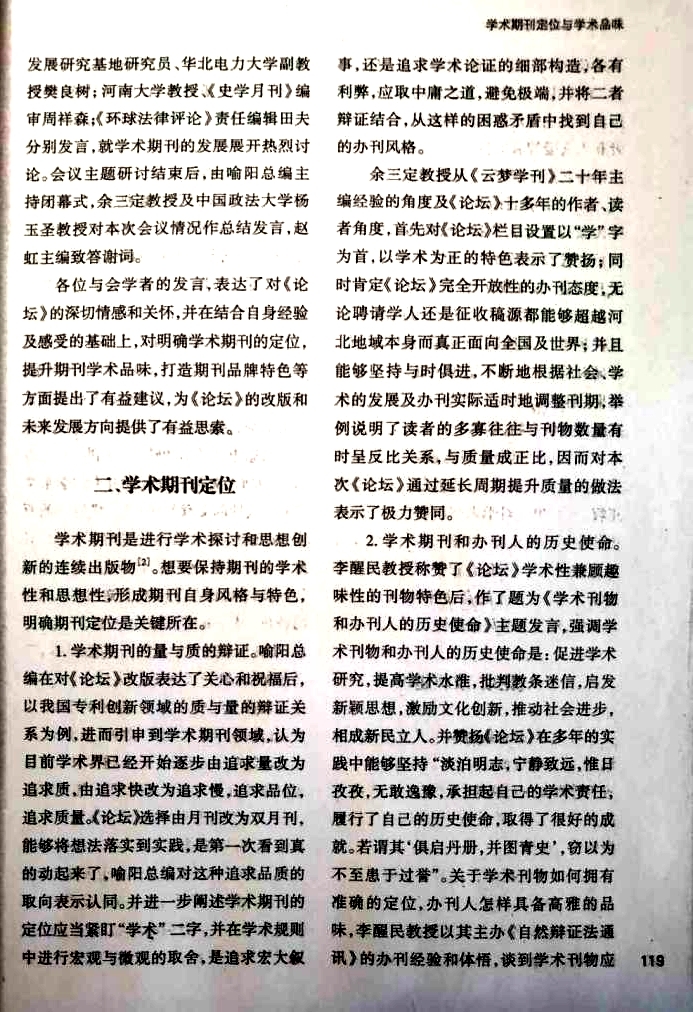 学术期刊定位与学术品味
发展研究基地研究员、华北电力大学副教
授樊良树;河南大学教授、《史学月刊》编
审周祥森;《环球法律评论》责任编辑田夫
分别发言,就学术期刊的发展展开热烈讨
论。会议主题研讨结束后,由喻阳总编主
持闭幕式,余三定教授及中国政法大学杨
玉圣教授对本次会议情况作总结发言,赵
虹主编致答谢词。
各位与会学者的发言,表达了对《论
坛》的深切情感和关怀,并在结合自身经验
及感受的基础上,对明确学术期刊的定位,
提升期刊学术品味,打造期刊品牌特色等
方面提出了有益建议,为《论坛》的改版和
未来发展方向提供了有益思索。
二、学术期刊定位
学术期刊是进行学术探讨和思想创
新的连续出版物[2]。想要保持期刊的学术
性和思想性,形成期刊自身风格与特色,
明确期刊定位是关键所在。
1.学术期刊的量与质的辩证。喻阳总
编在对《论坛》改版表达了关心和祝福后,
以我国专利创新领域的质与量的辩证关
系为例,进而引申到学术期刊领域,认为
目前学术界已经开始逐步由追求量改为
追求质,由追求快改为追求慢,追求品位,
追求质量。《论坛》选择由月刊改为双月刊,
能够将想法落实到实践,是第一次看到真
的动起来了,喻阳总编对这种追求品质的
取向表示认同。并进一步阐述学术期刊的
定位应当紧盯“学术”二字,并在学术规则
中进行宏观与微观的取舍,是追求宏大叙
事,还是追求学术论证的细部构造,各有
利弊,应取中庸之道,避免极端,并将二者
辩证结合,从这样的困惑矛盾中找到自己
的办刊风格。
余三定教授从《云梦学刊》二十年主
编经验的角度及《论坛》十多年的作者、读
者角度,首先对《论坛》栏目设置以“学”字
为首,以学术为正的特色表示了赞扬;同
时肯定《论坛》完全开放性的办刊态度,无
论聘请学人还是征收稿源都能够超越河
北地域本身而真正面向全国及世界;并且
能够坚持与时俱进,不断地根据社会、学
术的发展及办刊实际适时地调整刊期,举
例说明了读者的多寡往往与刊物数量有
时呈反比关系,与质量成正比,因而对本
次《论坛》通过延长周期提升质量的做法
表示了极力赞同。
2.学术期刊和办刊人的历史使命。
李醒民教授称赞了《论坛》学术性兼顾趣
味性的刊物特色后,作了题为《学术刊物
和办刊人的历史使命》主题发言,强调学
术刊物和办刊人的历史使命是:促进学术
研究,提高学术水准,批判教条迷信,启发
新颖思想,激励文化创新,推动社会进步,
相成新民立人。并赞扬《论坛》在多年的实
践中能够坚持“淡泊明志,宁静致远,惟日
孜孜,无敢逸豫,承担起自己的学术责任,
履行了自己的历史使命,取得了很好的成
就。若谓其‘俱启丹册,并图青史’,窃以为
不至患于过誉”。关于学术刊物如何拥有
准确的定位,办刊人怎样具备高雅的品
味,李醒民教授以其主办《自然辩证法通
讯》的办刊经验和体悟,谈到学术刊物应
119